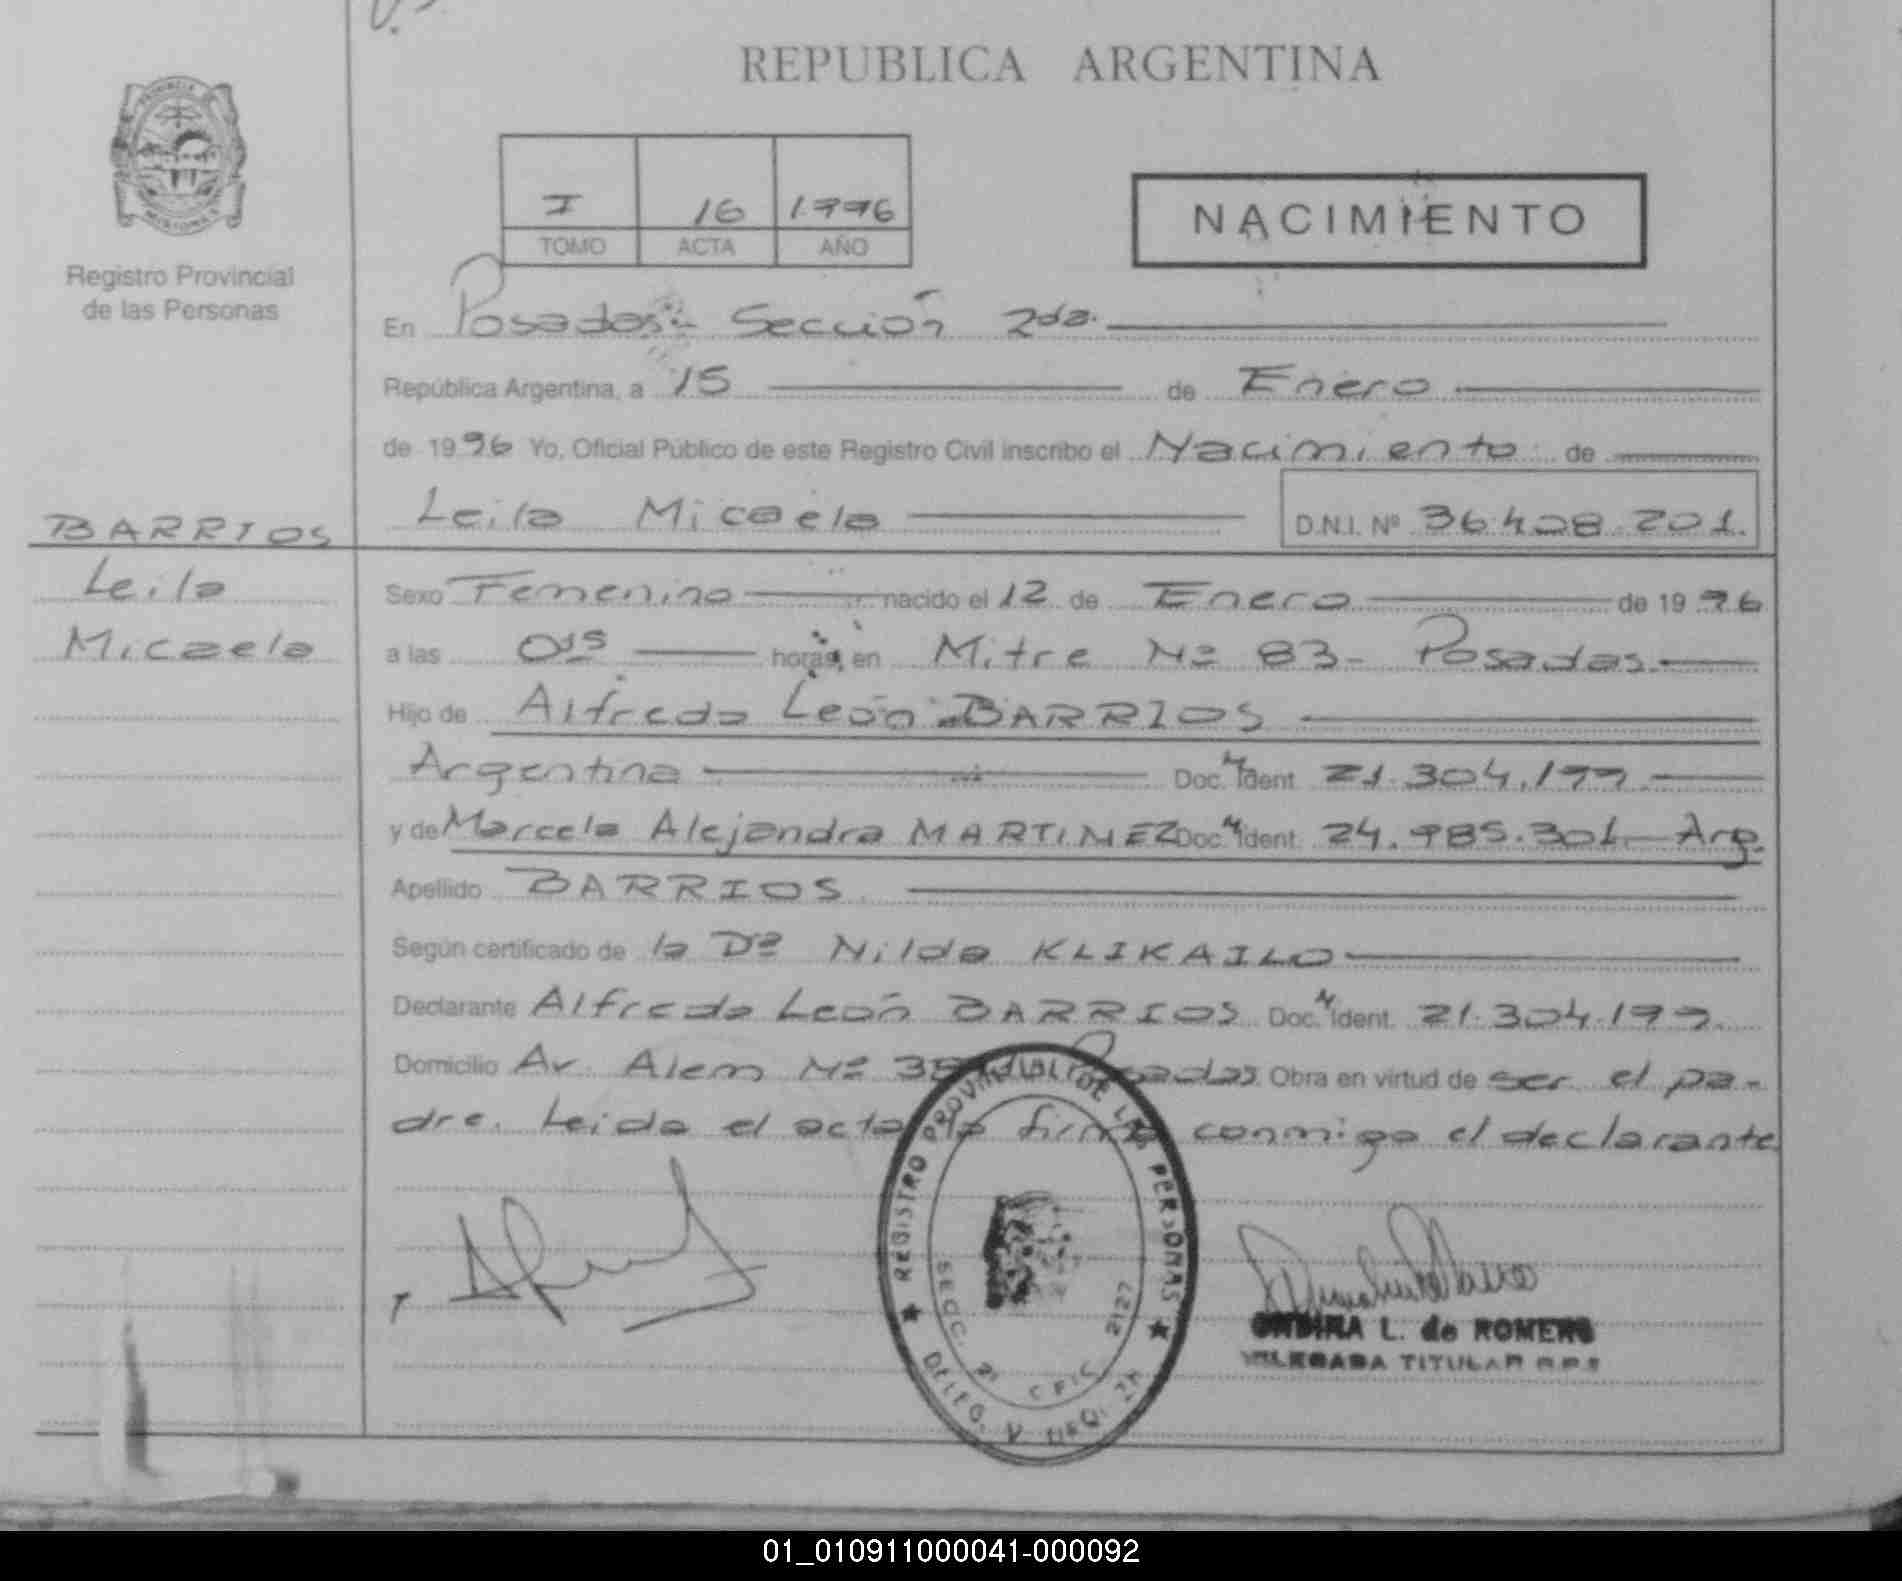 REPUBLICA ARGENTINA
I 16 1996
TOMO ACTA AÑO
NACIMIENTO
Registro Provincial
de las Personas
En Posadas - Sección 2da.
República Argentina, a 15 de Enero
de 1996 Yo, Oficial Público de este Registro Civil inscribo el Nacimiento de
Leila Micaela D.N.I. Nº 36.408.201.
BARRIOS
Leila
Micaela
Sexo Femenino nacido el 12 de Enero de 1996
a las 015 horas, en Mitre Nº 83 - Posadas.
Hijo de Alfredo León BARRIOS
Argentina Doc. Ident. 21.304.199.
y de Marcela Alejandra MARTINEZ Doc. Ident. 24.985.301. Arg.
Apellido BARRIOS
Según certificado de la Dª Nilda KLIKAILO
Declarante Alfredo León BARRIOS Doc. Ident. 21.304.199.
Domicilio Av. Alem Nº Posadas Obra en virtud de ser el pa-
dre. Leida el acta la firma conmigo el declarante
REGISTRO PROVINCIAL DE LAS PERSONAS
SECC. 2ª OFIC. 2127
DELEG.
L. de ROMERO
TITULAR
01_010911000041-000092